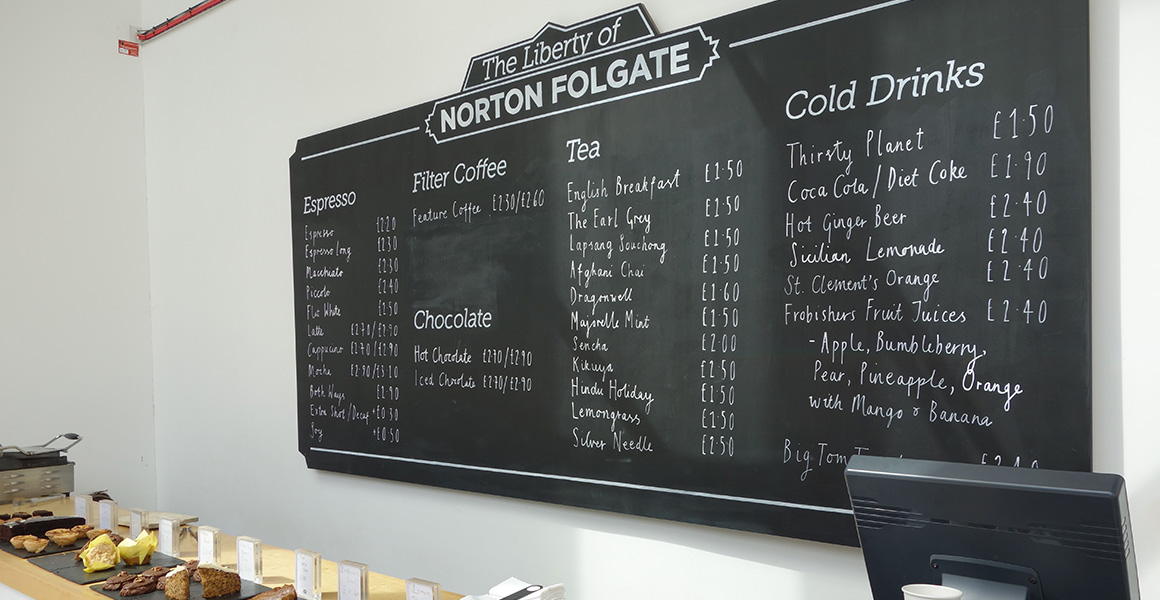 The Liberty of
NORTON FOLGATE
Espresso
Espresso £2.20
Espresso Long £2.30
Macchiato £2.30
Piccolo £2.40
Flat White £2.50
Latte £2.70/£2.90
Cappuccino £2.70/£2.90
Mocha £2.90/£3.10
Both Ways £2.90
Extra Shot/Decaf +£0.30
Soy +£0.50
Filter Coffee
Feature Coffee £2.30/£2.60
Chocolate
Hot Chocolate £2.70/£2.90
Iced Chocolate £2.70/£2.90
Tea
English Breakfast £1.50
The Earl Grey £1.50
Lapsang Souchong £1.50
Afghani Chai £1.50
Dragonwell £1.60
Majorelle Mint £1.50
Sencha £2.00
Kikuya £2.50
Hindu Holiday £1.50
Lemongrass £1.50
Silver Needle £2.50
Cold Drinks
Thirsty Planet £1.50
Coca Cola/Diet Coke £1.90
Hot Ginger Beer £2.40
Sicilian Lemonade £2.40
St. Clement's Orange £2.40
Frobishers Fruit Juices £2.40
- Apple, Bumbleberry,
Pear, Pineapple, Orange
with Mango & Banana
Big Tom £2.40